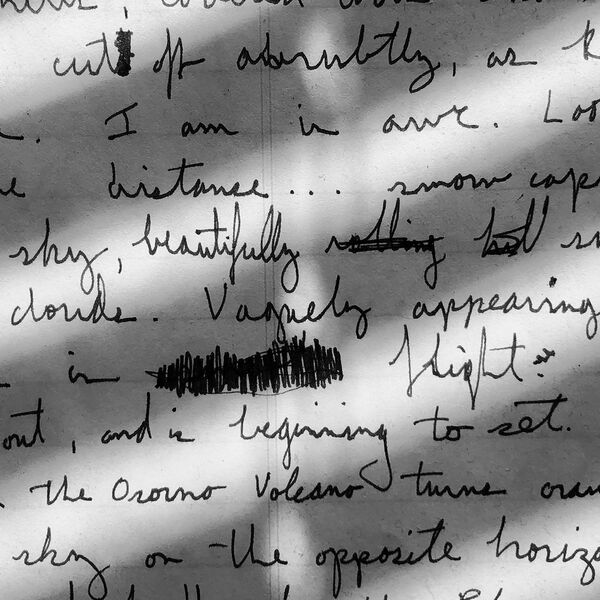 cut off abruptly, as
I am in awe. Loo
distance... snow cap
sky, beautifully rolling
clouds. Vaguely appearing
in flight.
out, and is beginning to set.
the Osorno Volcano turns oran
sky on the opposite horizo